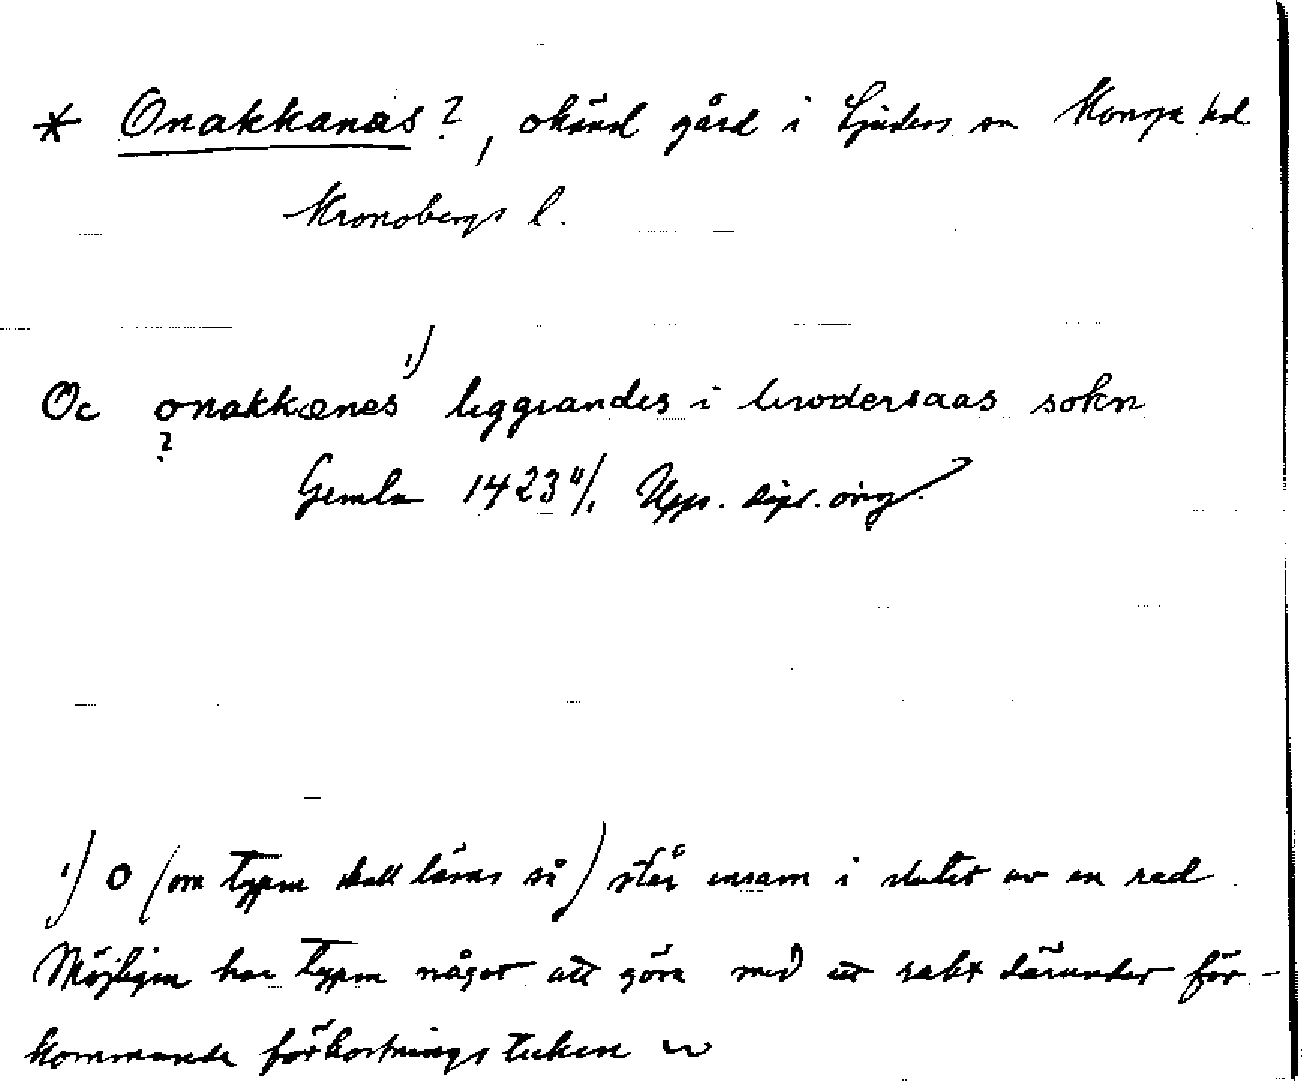 * Onakkanäs?, okänd gård i Ljuders sn Konga hd
Kronobergs l.
Oc onakkænes 1) liggiandis i liwdersaas sokn
?
Gemla 1423 4/1 Upps. dipl. orig.
1) O (om typen skall läsas så) står ensam i slutet av en rad.
Möjligen har typen något att göra med ett rakt därunder för-
kommande förkortningstecken ~